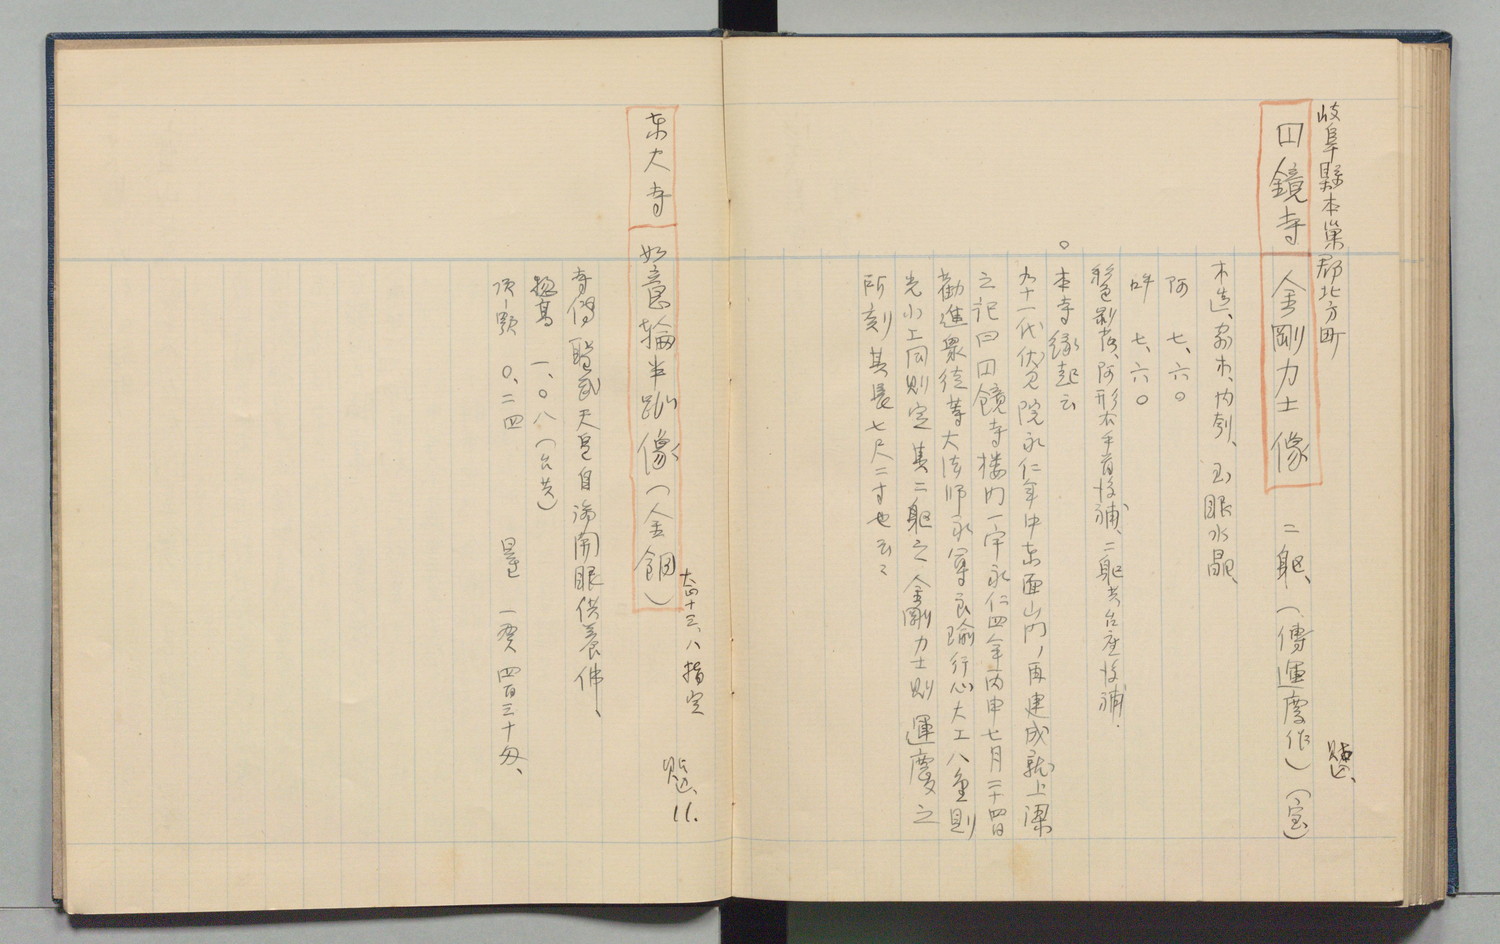 岐阜縣本巣郡北方町
円鏡寺 金剛力士像 二躯、(傳運慶作)(宝)
木造、寄木、内刳、玉眼水晶、
阿 七、六〇
吽 七、六〇
彩色剥落、阿形右手首後補、二躯共台座後補、
○
本寺縁起云
九十一代伏見院永仁年中東面山門ノ再建成就上梁
之記曰円鏡寺楼門一宇永仁四年丙申七月二十四日
勧進衆徒等大法師永尊良瑜行心大工八重則
光小工同則定其二躯之金剛力士則運慶之
所刻其長七尺二寸也云々
東大寺 如意輪半跏像(金銅)
大正十三、八指定
11.
寺傳聖武天皇自渉開眼供養佛、
総高 一、〇八(台共)
頂―顎 〇、二四 量 一貫四百三十匁、